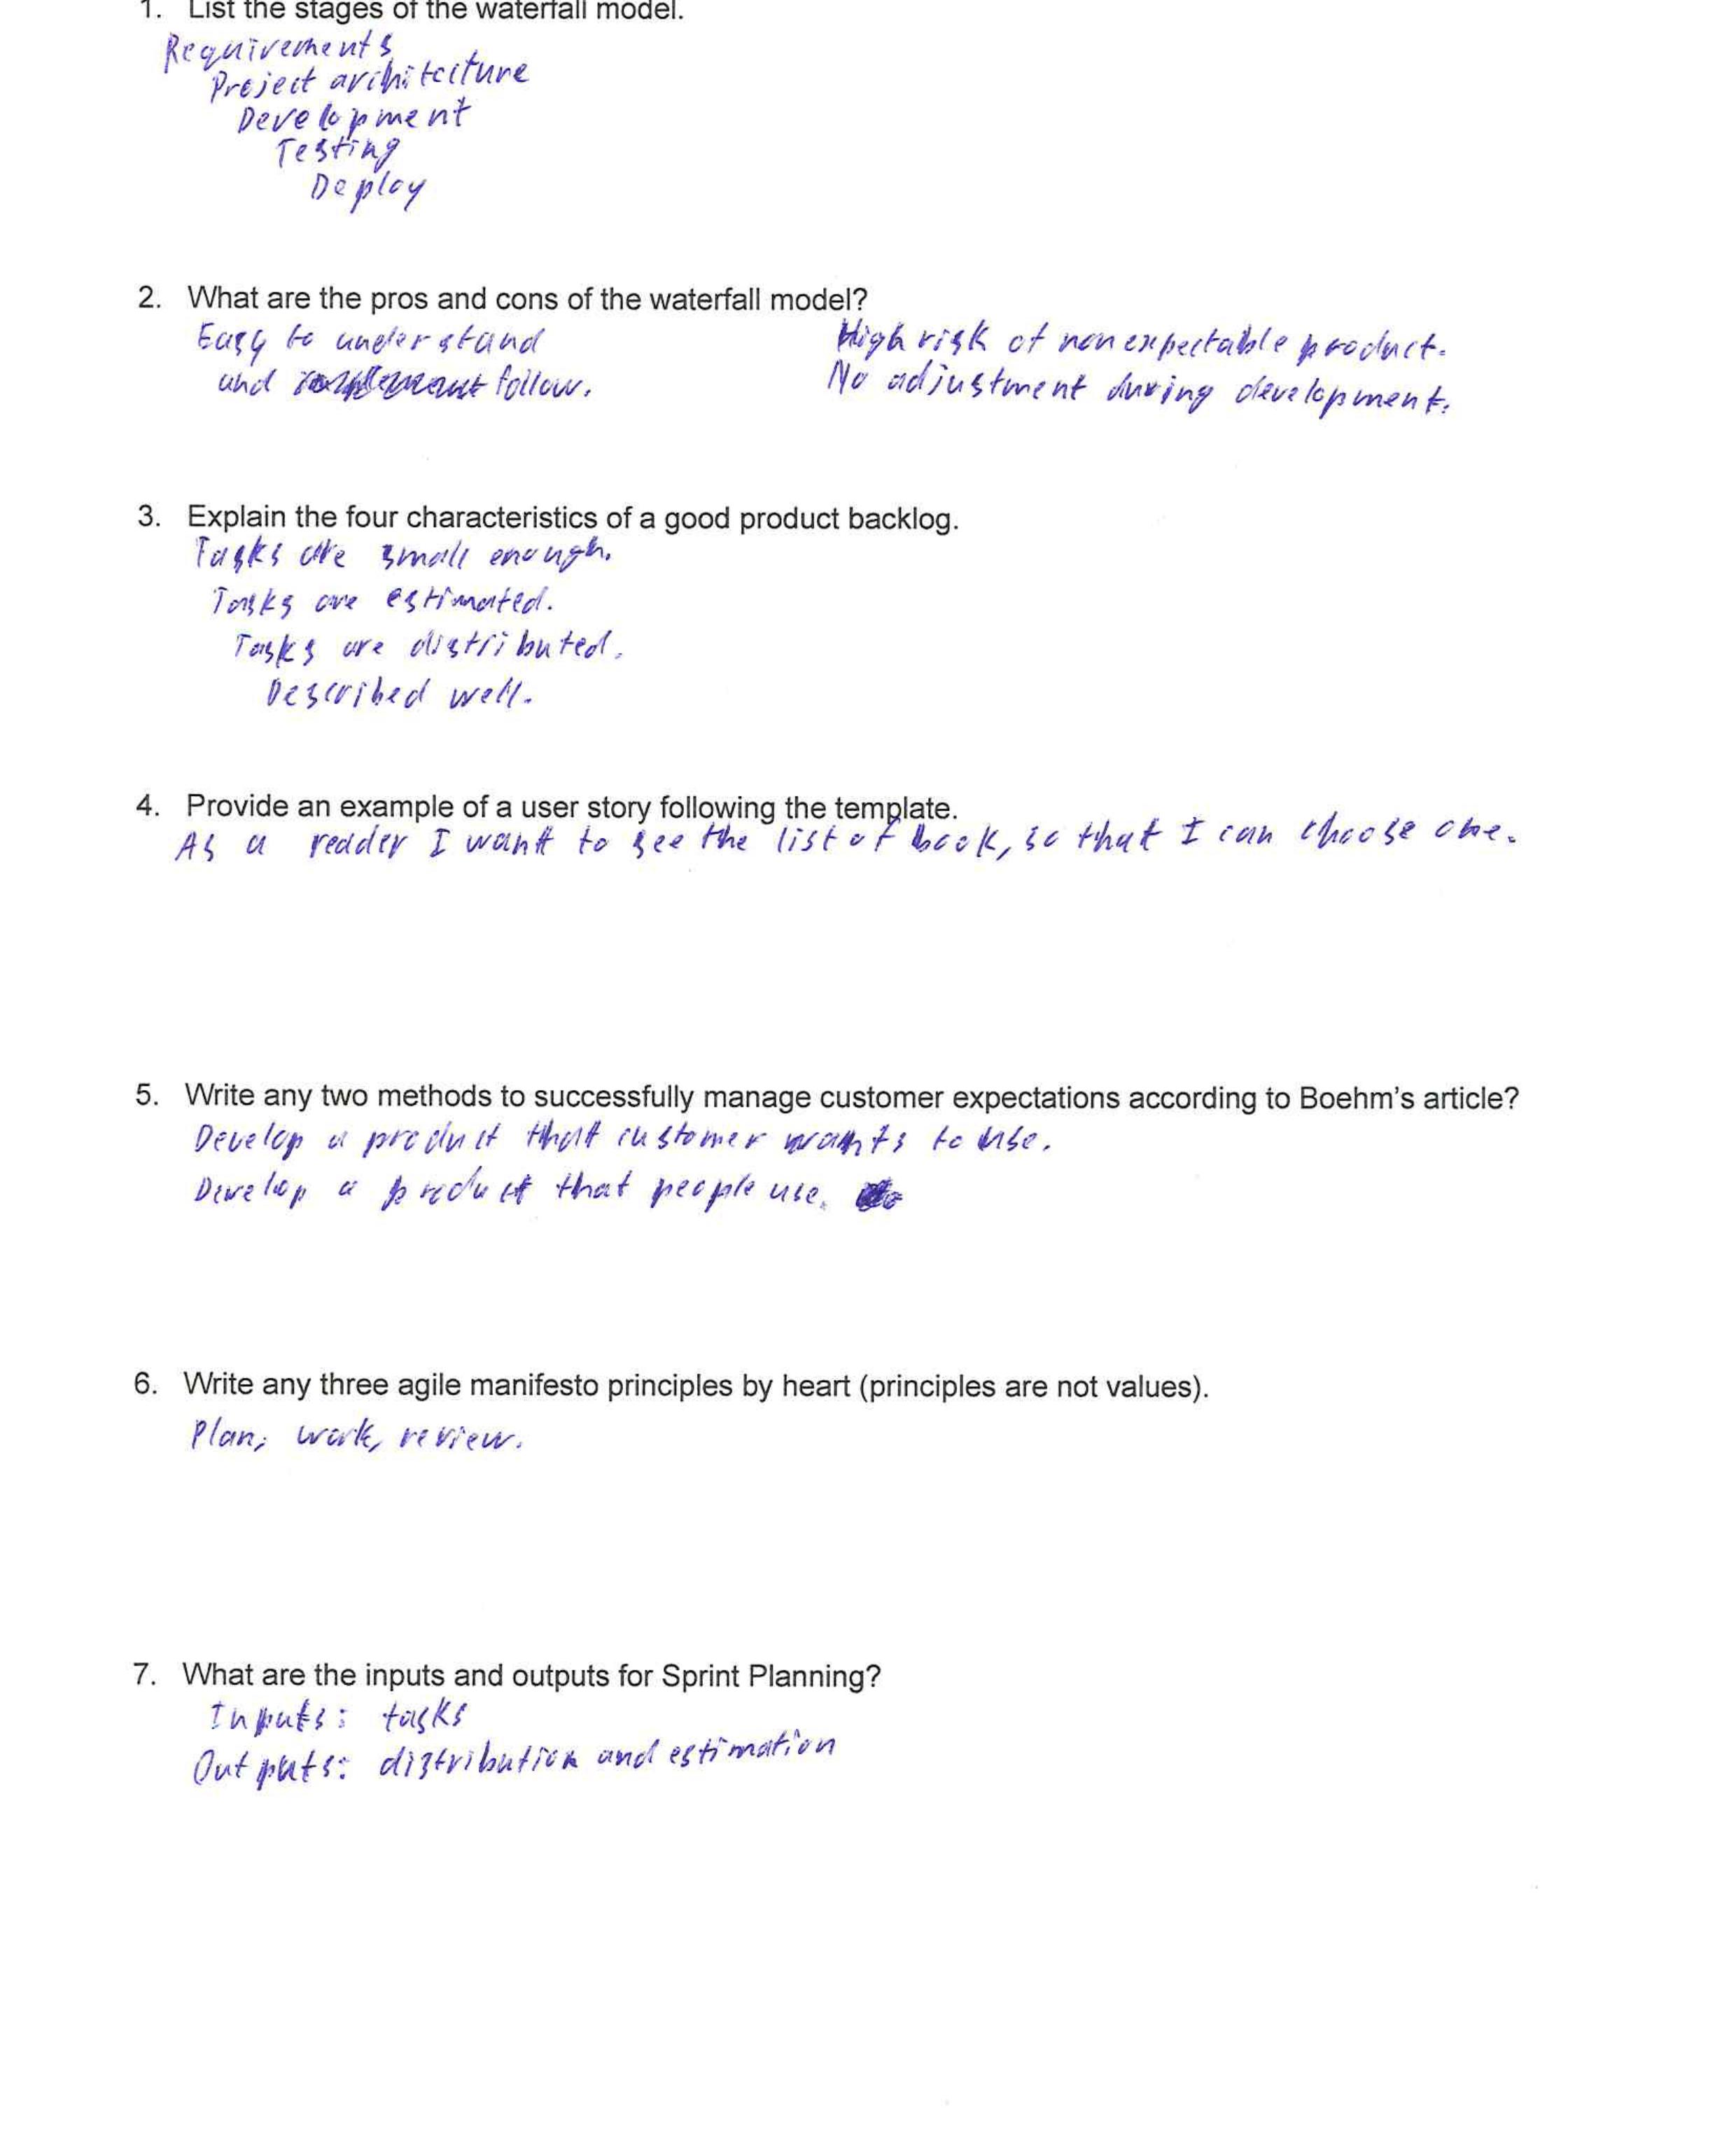 1. List the stages of the waterfall model.
Requirements
Project architecture
Development
Testing
Deploy
2. What are the pros and cons of the waterfall model?
Easy to understand
and follow.
High risk of non expectable product.
No adjustment during development.
3. Explain the four characteristics of a good product backlog.
Tasks are small enough.
Tasks are estimated.
Tasks are distributed.
Described well.
4. Provide an example of a user story following the template.
As a reader I want to see the list of book, so that I can choose one.
5. Write any two methods to successfully manage customer expectations according to Boehm's article?
Develop a product that customer wants to use.
Develop a product that people use.
6. Write any three agile manifesto principles by heart (principles are not values).
Plan, work, review.
7. What are the inputs and outputs for Sprint Planning?
Inputs: tasks
Outputs: distribution and estimation